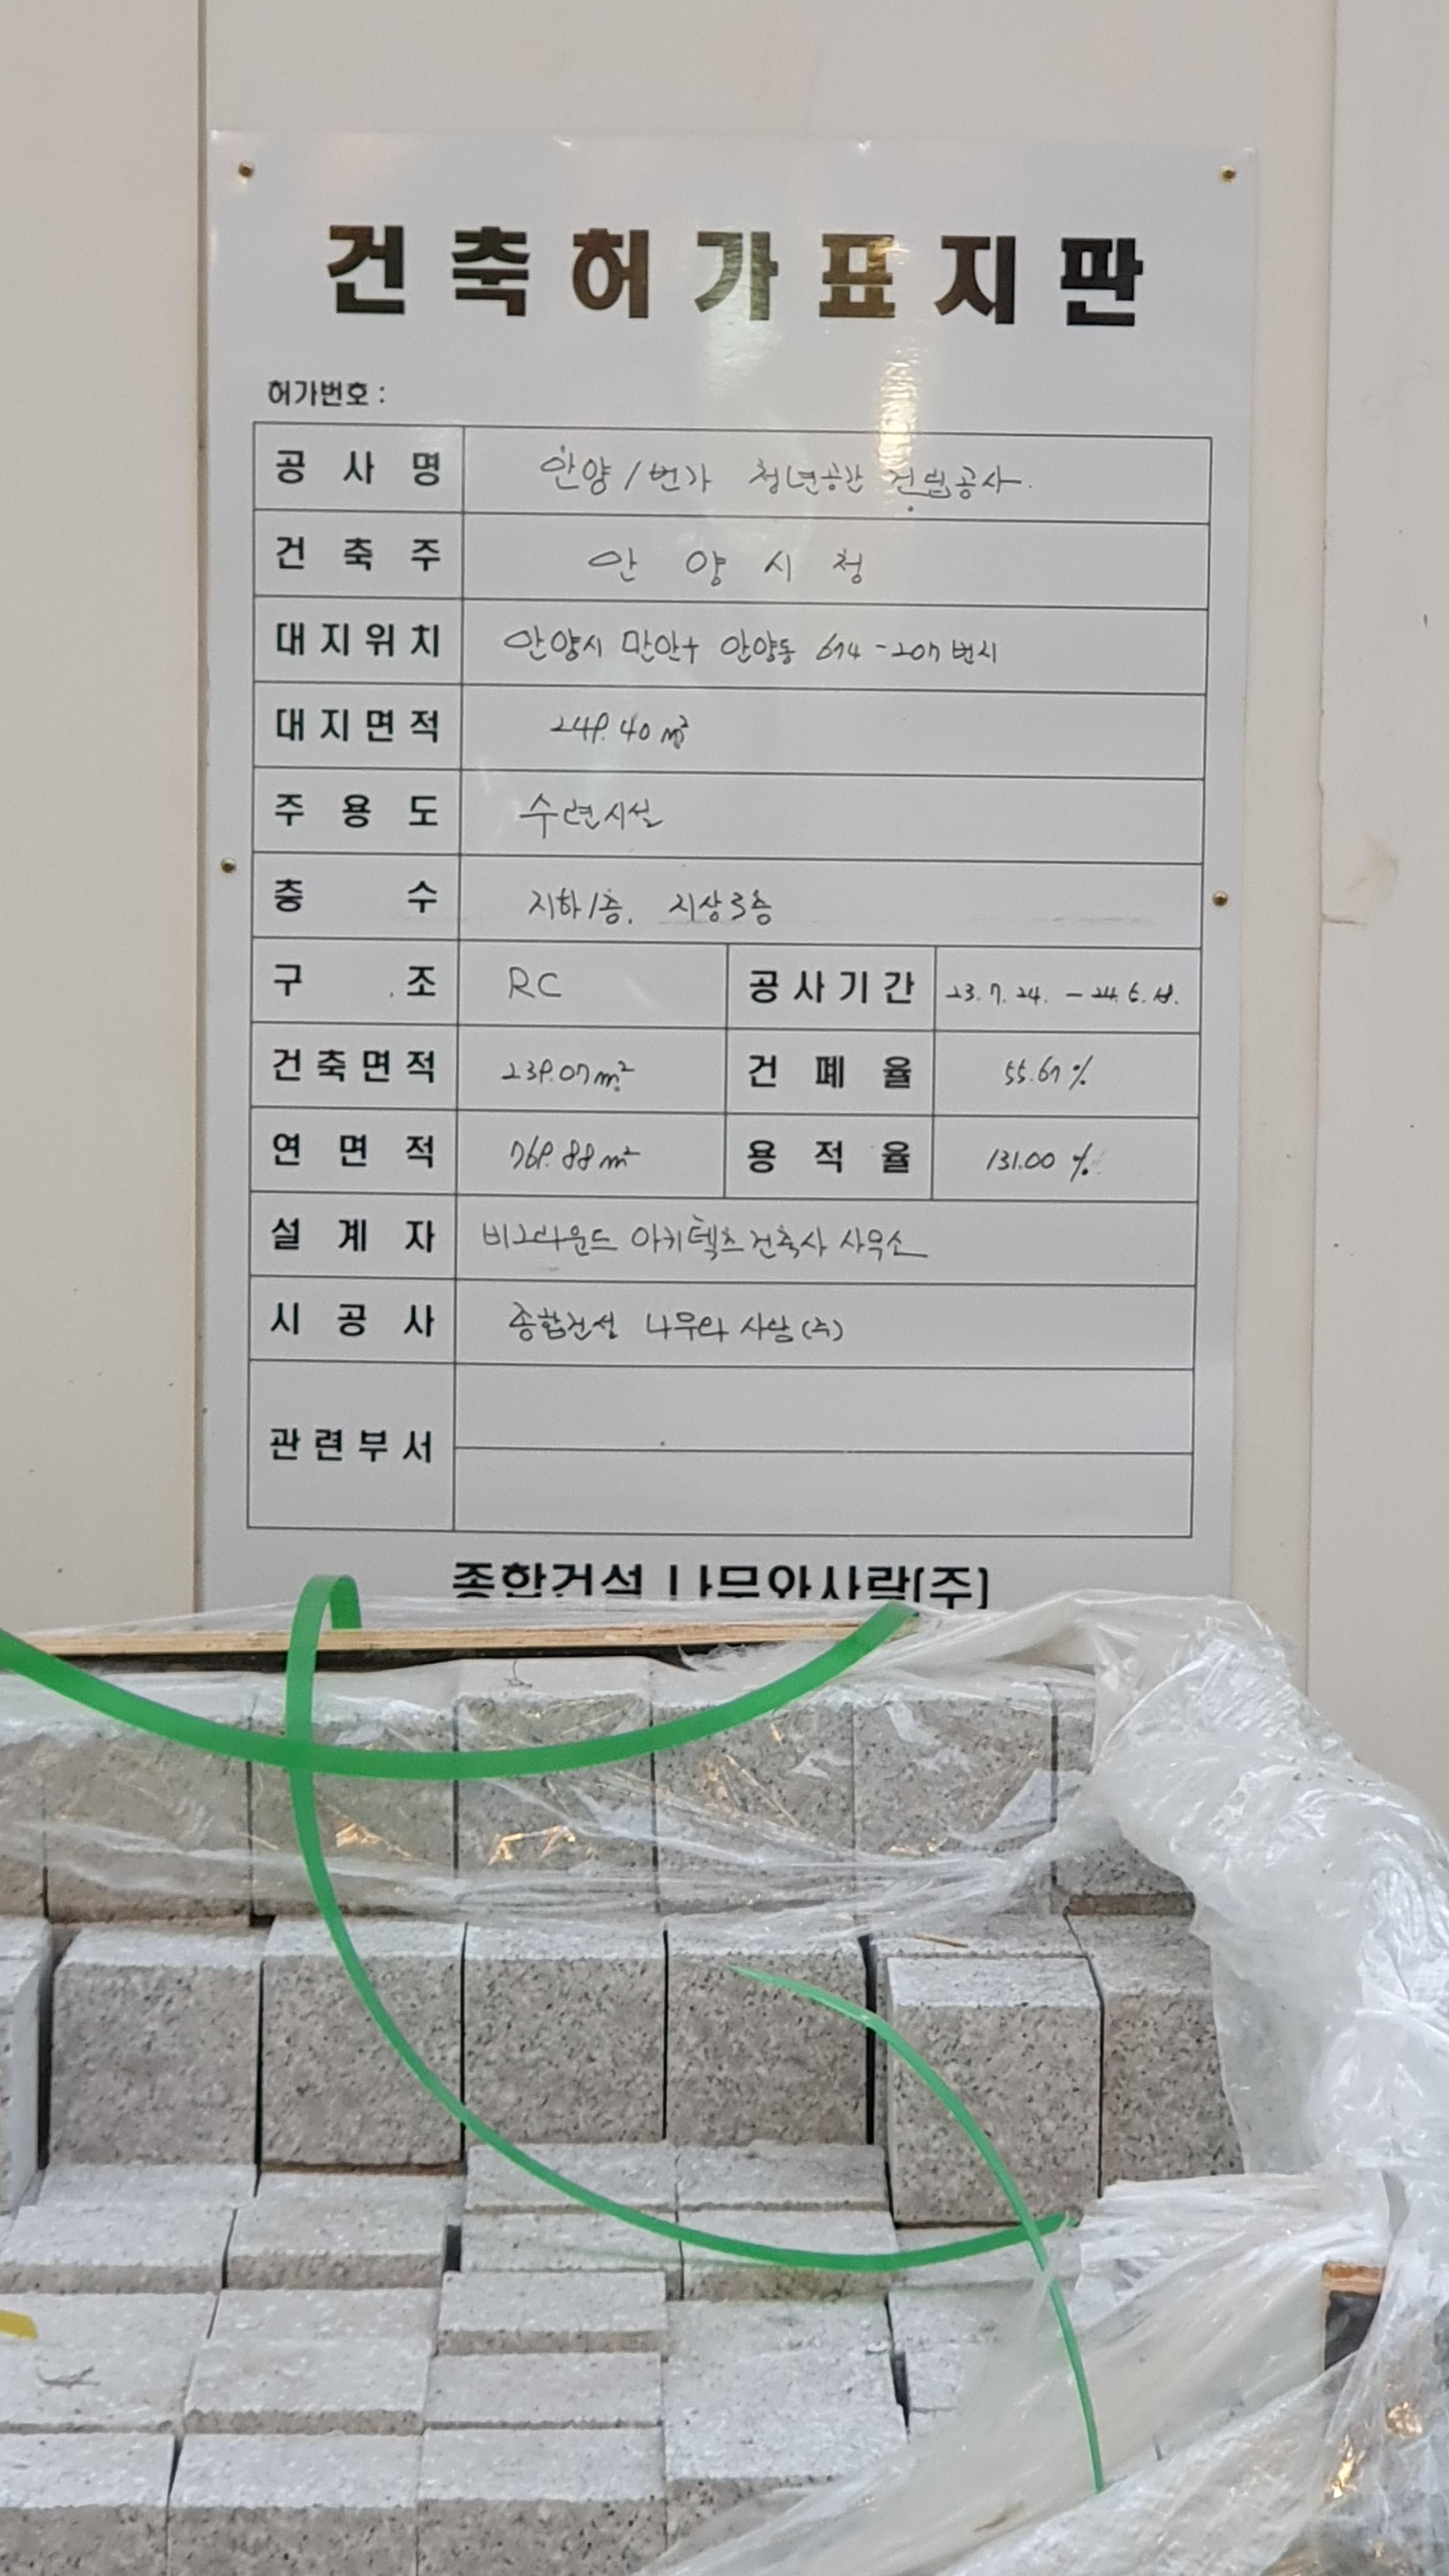 건축허가표지판
허가번호 :
공사명 안양1번가 청년공간 건립공사.
건축주 안양시청
대지위치 안양시 만안구 안양동 674-207번지
대지면적 249.40㎡
주용도 수련시설
층수 지하1층. 지상3층
구조 RC 공사기간 23.7.24. - 24.6.18.
건축면적 239.07㎡ 건폐율 55.67%
연면적 769.88㎡ 용적율 131.00%
설계자 비그라운드 아키텍츠 건축사 사무소
시공사 종합건설 나무와 사람(주)
관련부서
종합건설 나무와사람(주)